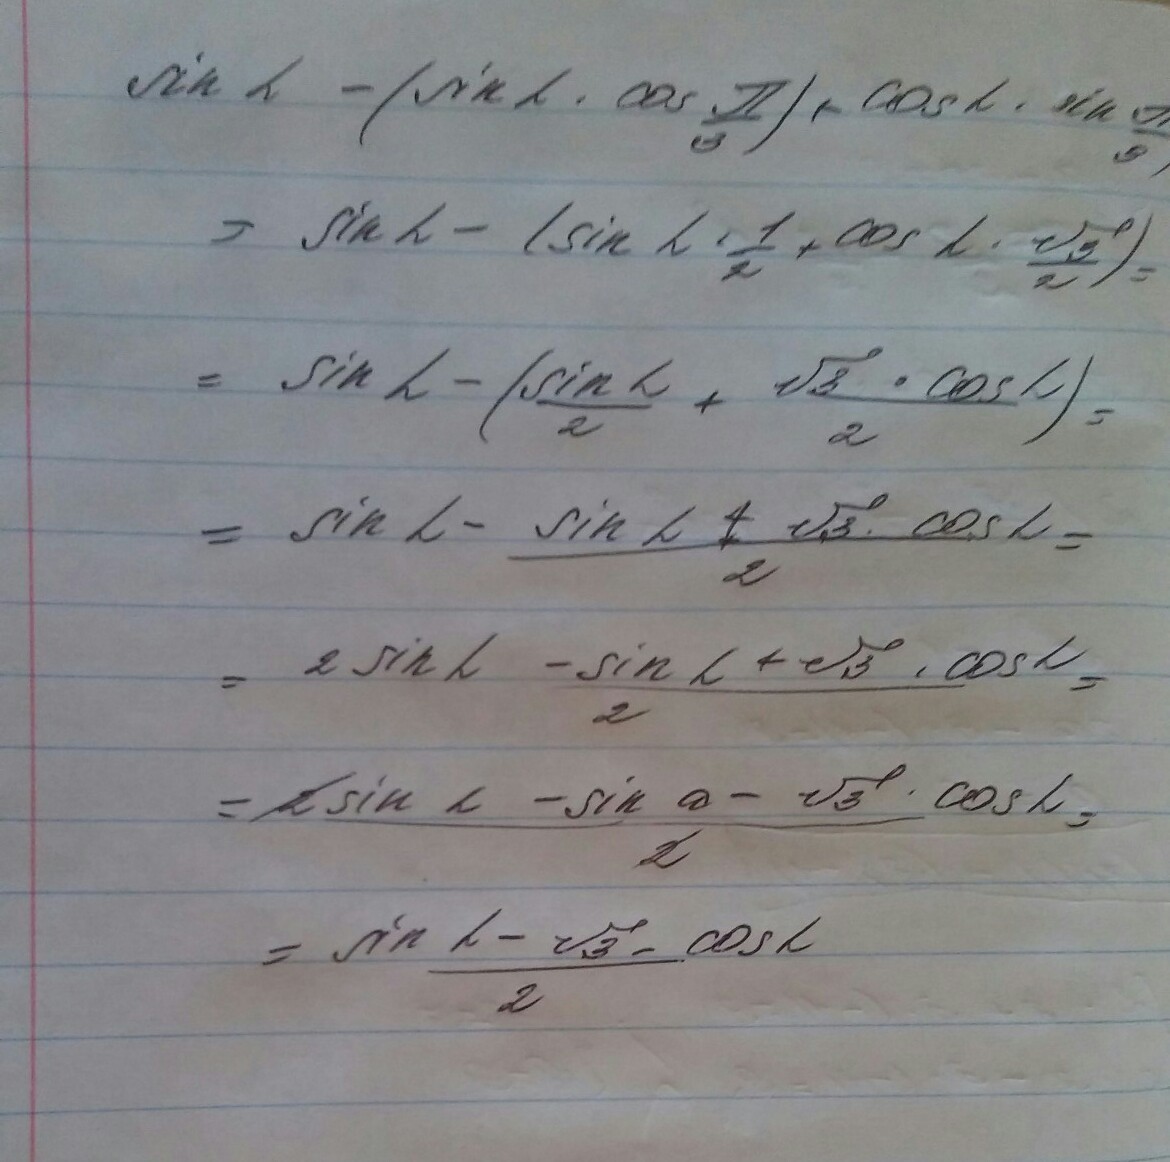 sin α - (sin α · cos π/3) + cos α · sin π/3)
= sin α - (sin α · 1/2 + cos α · √3/2) =
= sin α - (sin α/2 + √3 · cos α/2) =
= sin α - sin α + √3 · cos α/2 =
= 2 sin α - sin α + √3 · cos α/2 =
= 2 sin α - sin α - √3 · cos α/2 =
= sin α - √3 - cos α/2